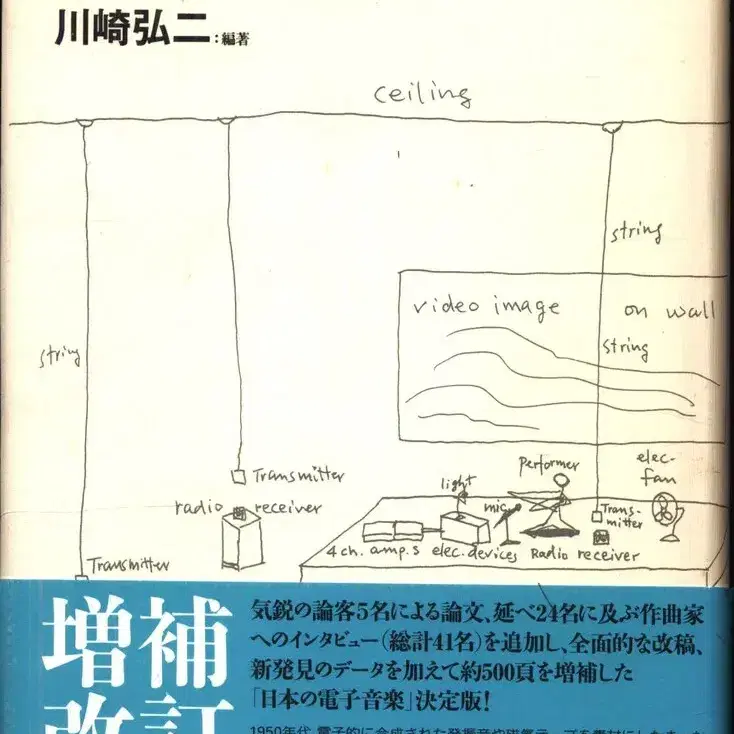 川崎弘二:編著
ceiling
string
video image on wall
string
string
Transmitter
radio receiver
Transmitter
light
mic
performer
elec-
fan
Trans-
mitter
4 ch. amp.s elec. devices Radio receiver
増補
改訂
気鋭の論客5名による論文、延べ24名に及ぶ作曲家
へのインタビュー(総計41名)を追加し、全面的な改稿、
新発見のデータを加えて約500頁を増補した
「日本の電子音楽」決定版!